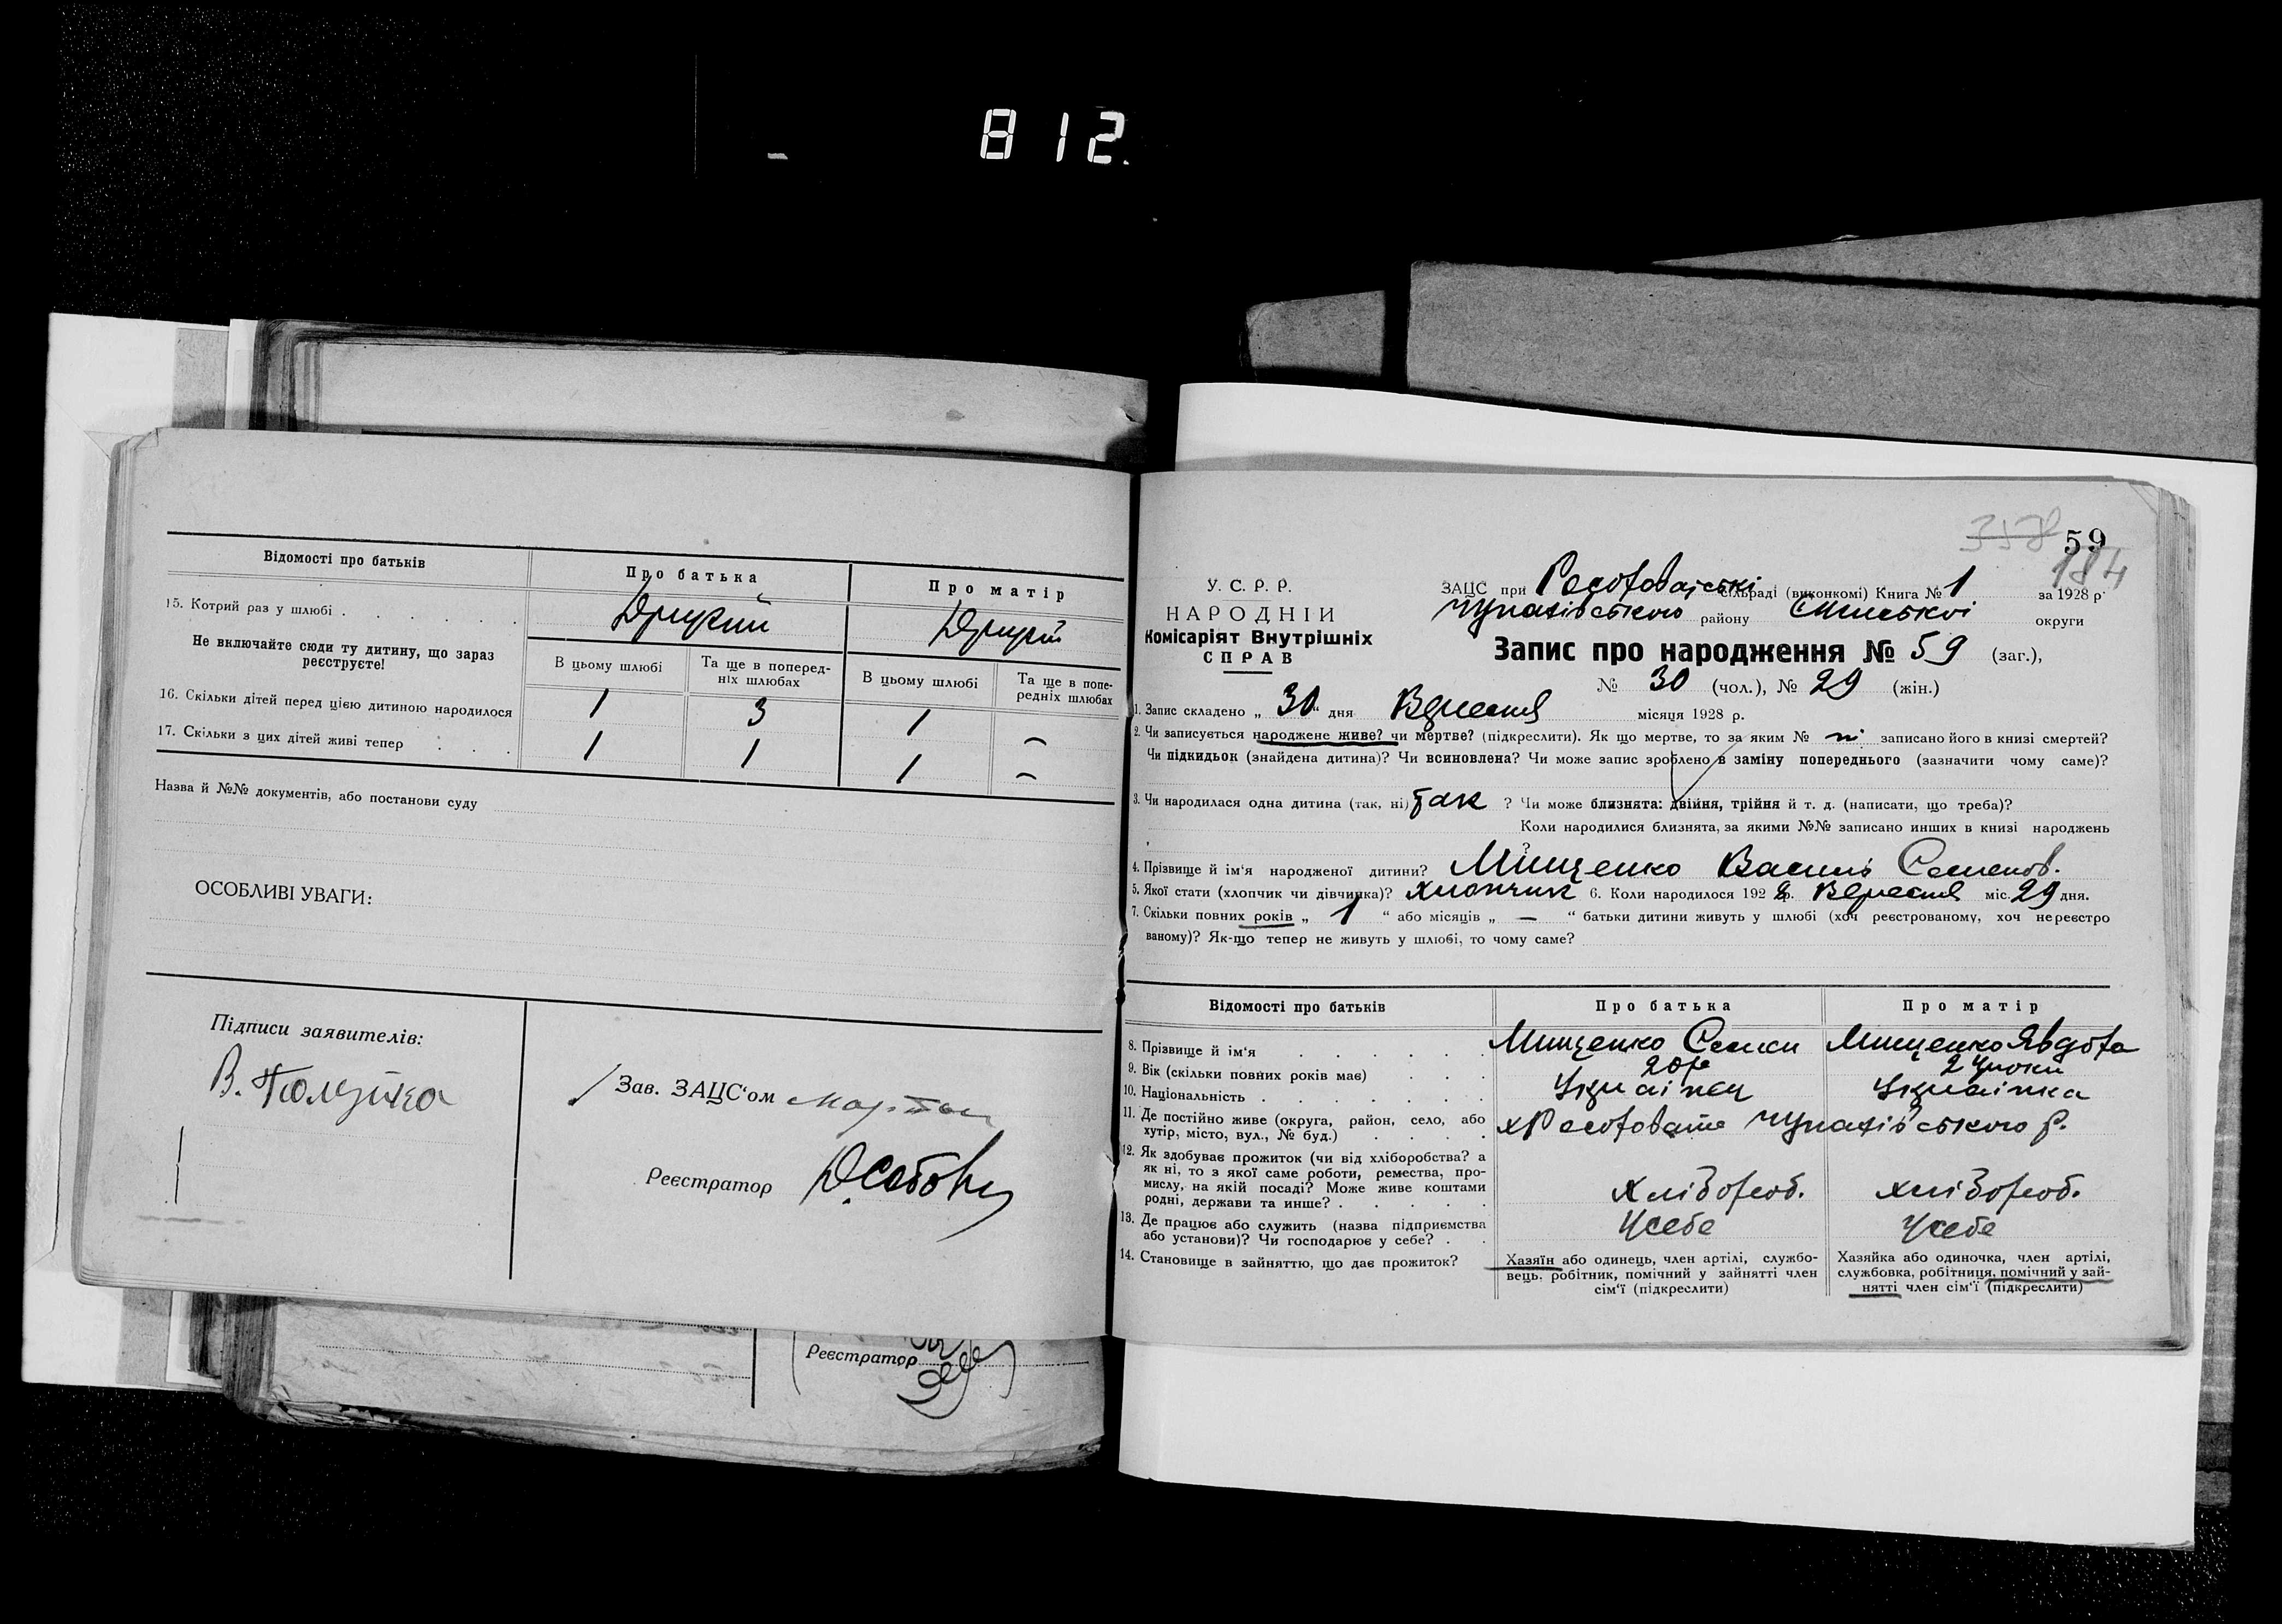 812.
Відомості про батьків
Про батька
Про матір
15. Котрий раз у шлюбі . . . . . . .
Другий
Другий
Не включайте сюди ту дитину, що зараз
реєструєте!
В цьому шлюбі
Та ще в поперед-
ніх шлюбах
В цьому шлюбі
Та ще в попе-
редніх шлюбах
16. Скільки дітей перед цією дитиною народилося
1
3
1
—
17. Скільки з цих дітей живі тепер . . .
1
1
1
—
Назва й №№ документів, або постанови суду
ОСОБЛИВІ УВАГИ:
Підписи заявителів:
Зав. ЗАЦС‘ом
Реєстратор
Реєстратор
358
59
184
У. С. Р. Р.
НАРОДНІЙ
Комісаріят Внутрішніх
СПРАВ
ЗАЦС при сільраді (виконкомі) Книга № 1 за 1928 р.
району округи
Запис про народження № 59 (заг.),
№ 30 (чол.), № 29 (жін.)
1. Запис складено „ 30 “ дня Вересня місяця 1928 р.
2. Чи записується народжене живе? чи мертве? (підкреслити). Як що мертве, то за яким № ні записано його в книзі смертей?
Чи підкидьок (знайдена дитина)? Чи всиновлена? Чи може запис зроблено в заміну попереднього (зазначити чому саме)?
3. Чи народилася одна дитина (так, ні) так ? Чи може близнята: двійня, трійня й т. д. (написати, що треба)?
Коли народилися близнята, за якими №№ записано инших в книзі народжень
?
4. Прізвище й ім‘я народженої дитини? Мищенко Василь Семенов.
5. Якої стати (хлопчик чи дівчинка)? хлопчик 6. Коли народилося 1928 р. Вересня міс. 29 дня.
7. Скільки повних років „ 1 “ або місяців „ — “ батьки дитини живуть у шлюбі (хоч реєстрованому, хоч нереєстро
ваному)? Як-що тепер не живуть у шлюбі, то чому саме?
Відомості про батьків
Про батька
Про матір
8. Прізвище й ім‘я . . . . . .
Мищенко Семен
Мищенко Явдоха
9. Вік (скільки повних років має) . . .
10. Національність . . . . . . .
Українец
Українка
11. Де постійно живе (округа, район, село, або
хутір, місто, вул., № буд.) . . . .
12. Як здобуває прожиток (чи від хліборобства? а
як ні, то з якої саме роботи, ремества, про-
мислу, на якій посаді? Може живе коштами
родні, держави та инше? . . . . .
хлібороб.
хлібороб.
13. Де працює або служить (назва підприємства
або установи)? Чи господарює у себе? . .
Усебе
Усебе
14. Становище в зайняттю, що дає прожиток?
Хазяїн або одинець, член артілі, службо-
вець, робітник, помічний у зайнятті член
сім‘ї (підкреслити)
Хазяйка або одиночка, член артілі,
службовка, робітниця, помічний у зай-
нятті член сім‘ї (підкреслити)